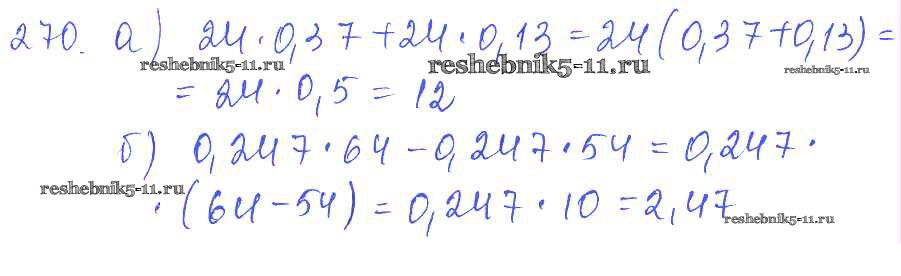 270. а) 24·0,37+24·0,13=24(0,37+0,13)=
reshebnik5-11.ru reshebnik5-11.ru reshebnik5-11.ru
=24·0,5=12
б) 0,247·64-0,247·54=0,247·
reshebnik5-11.ru
·(64-54)=0,247·10=2,47
reshebnik5-11.ru